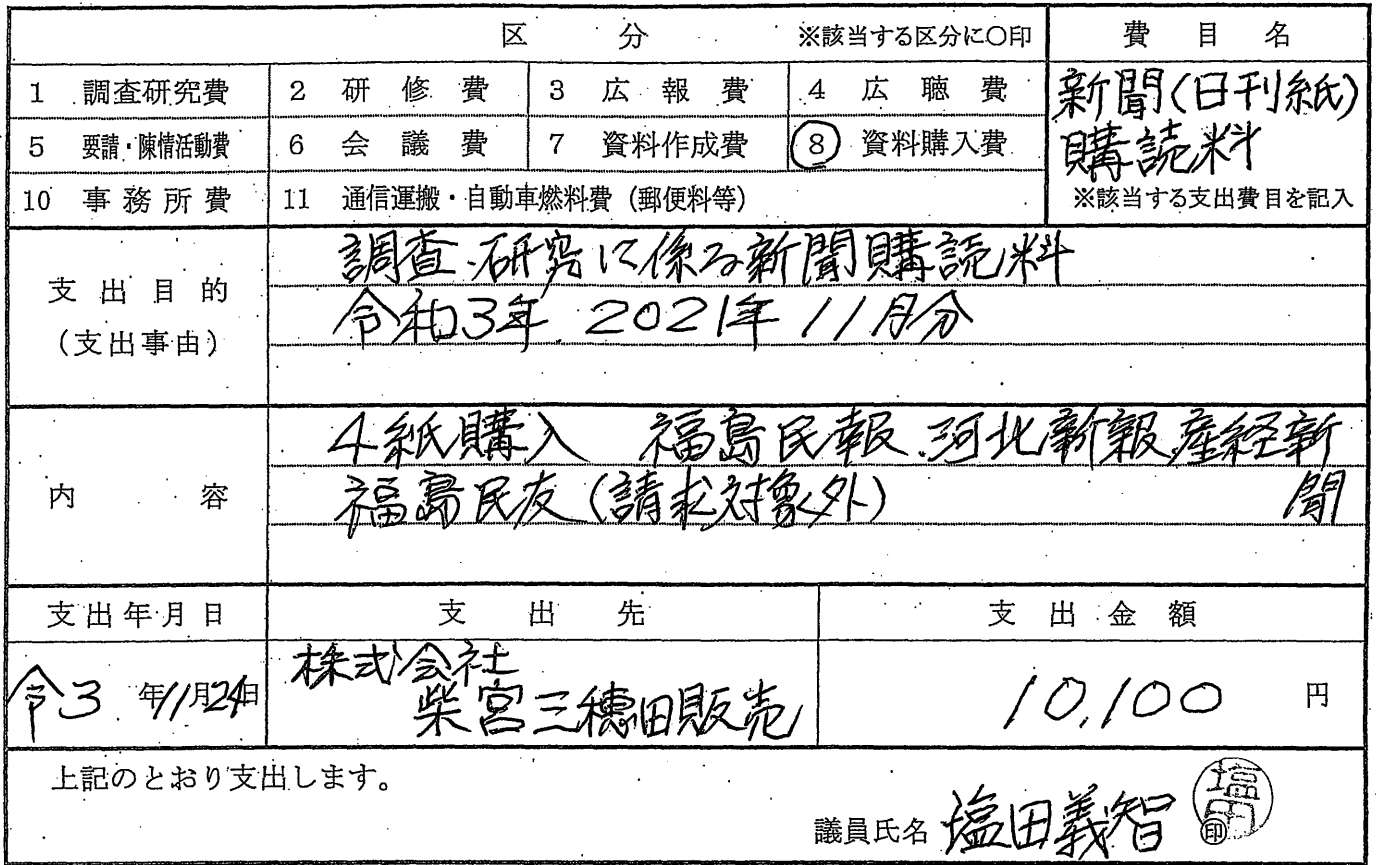 区分 ※該当する区分に○印 費目名
1 調査研究費 2 研修費 3 広報費 4 広聴費
新聞(日刊紙)
5 要請・陳情活動費 6 会議費 7 資料作成費 8 資料購入費
購読料
10 事務所費 11 通信運搬・自動車燃料費(郵便料等) ※該当する支出費目を記入
支出目的
(支出事由)
調査・研究に係る新聞購読料
令和3年 2021年 11月分
内容
4紙購入 福島民報、河北新報、産経新
聞
福島民友(請求対象外)
支出年月日 支出先 支出金額
令3年11月24日
株式会社
柴宮三穂田販売
10,100円
上記のとおり支出します。
議員氏名 塩田義智 塩田 印